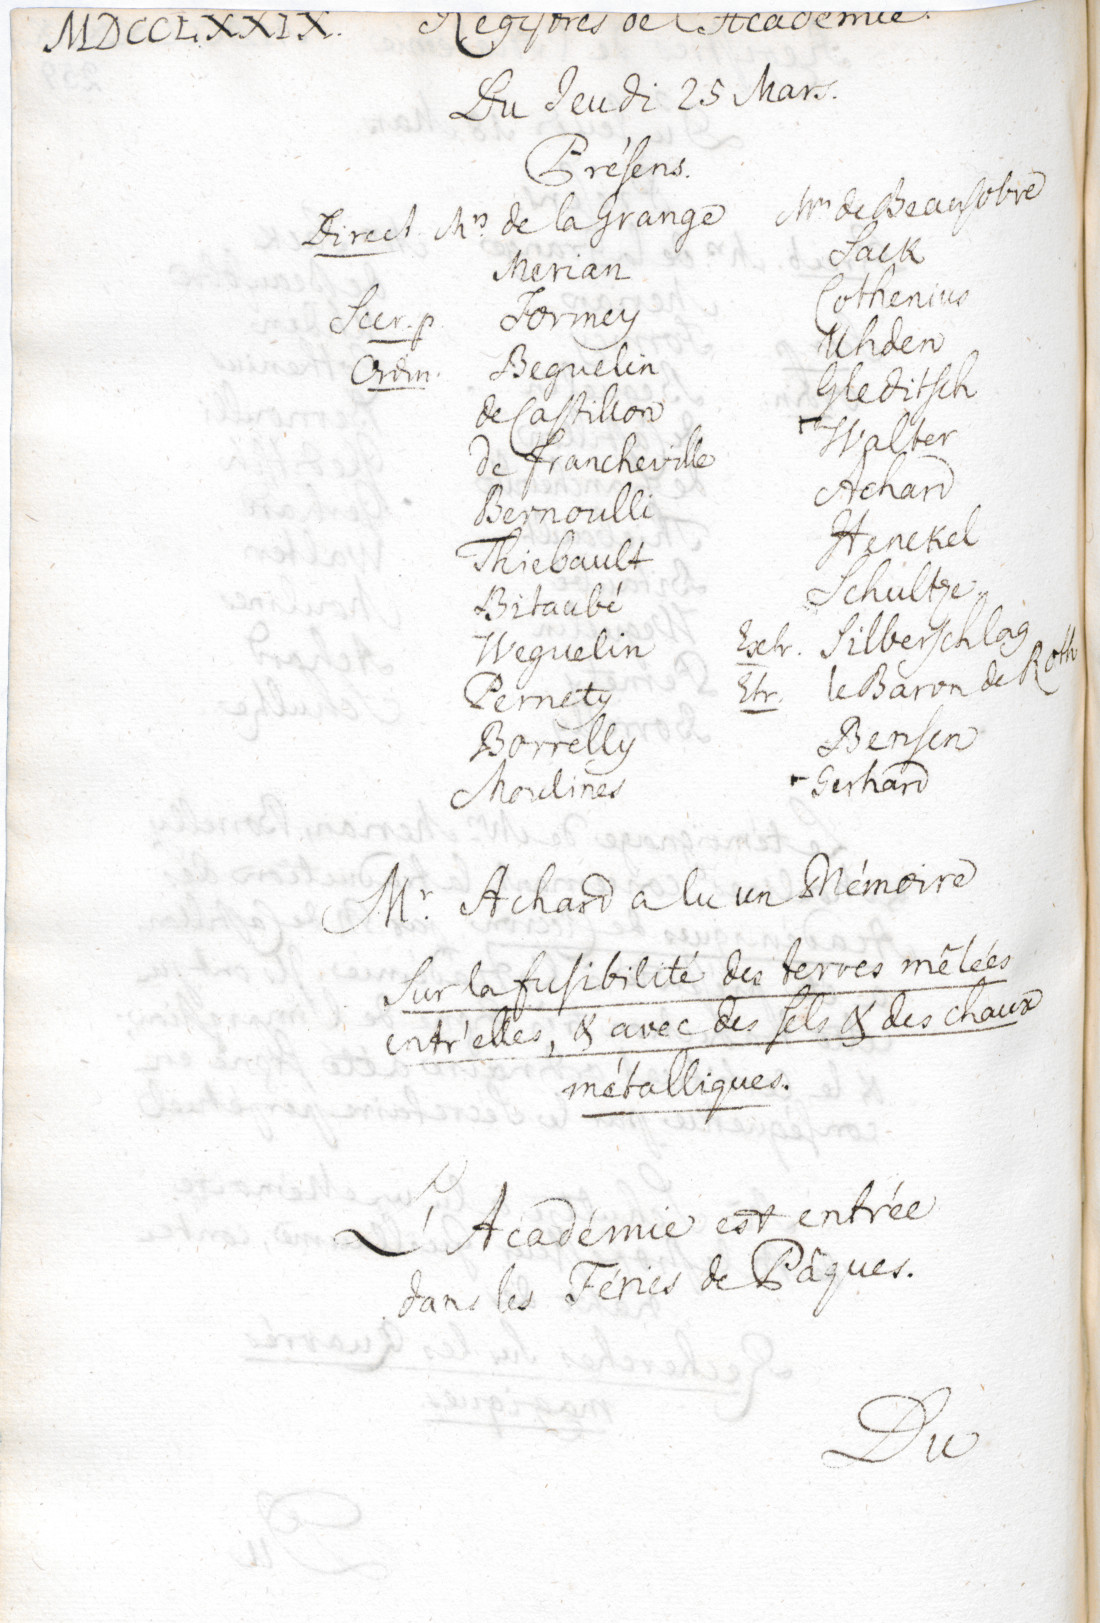 MDCCLXXIX. Registres de l'Academie.
Du Jeudi 25 Mars.
Présens.
Direct. Mrs. de la Grange
Merian
Secr. p. Formey
Ordin. Beguelin
de Castillon
de Francheville
Bernoulli
Thiebault
Bitaubé
Weguelin
Pernety
Borrelly
Moulines
Mrs de Beausobre
Sack
Cothenius
Uhden
Gleditsch
Walter
Achard
Henckel
Schultze
Extr. Silberschlag
Etr. le Baron de Roth
Bensen
Gerhard
Mr. Achard a lu un Mémoire
sur la fusibilité des terres mêlées
entr'elles, & avec des sels & des chaux
métalliques.
L'Académie est entrée
dans les Féries de Pâques.
Du